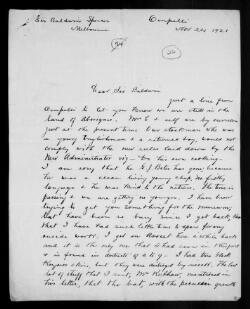 Sir Baldwin Spencer
Melbourne
Oenpelli
Nov 24 1921
Dear Sir Baldwin
Just a line from
Oenpelli to let you know we are still in the
land of Aborigines. Mrs C & self are by ourselves
just at the present time. Our stockman who was
a young Englishman & a returned boy, would not
comply with the new rules laid down by the
New Administrator viz - his own
I am sorry that he has gone because
he was a clean living young chap, no filthy
language & he was kind to the natives. The time is
passing & we are getting no younger. I have been
trying to get you something for the museum,
but have been so busy since I got back
that I have had much little time to spare for any
outside work. I got one a while back
and it is the only one that I had seen in these parts
& is found in of I had two
skins but they were destroyed by insects. The last
lot of stuff that I sent, Mr Kershaw, mentioned in
his letter, that the bat, with the peculiar growth